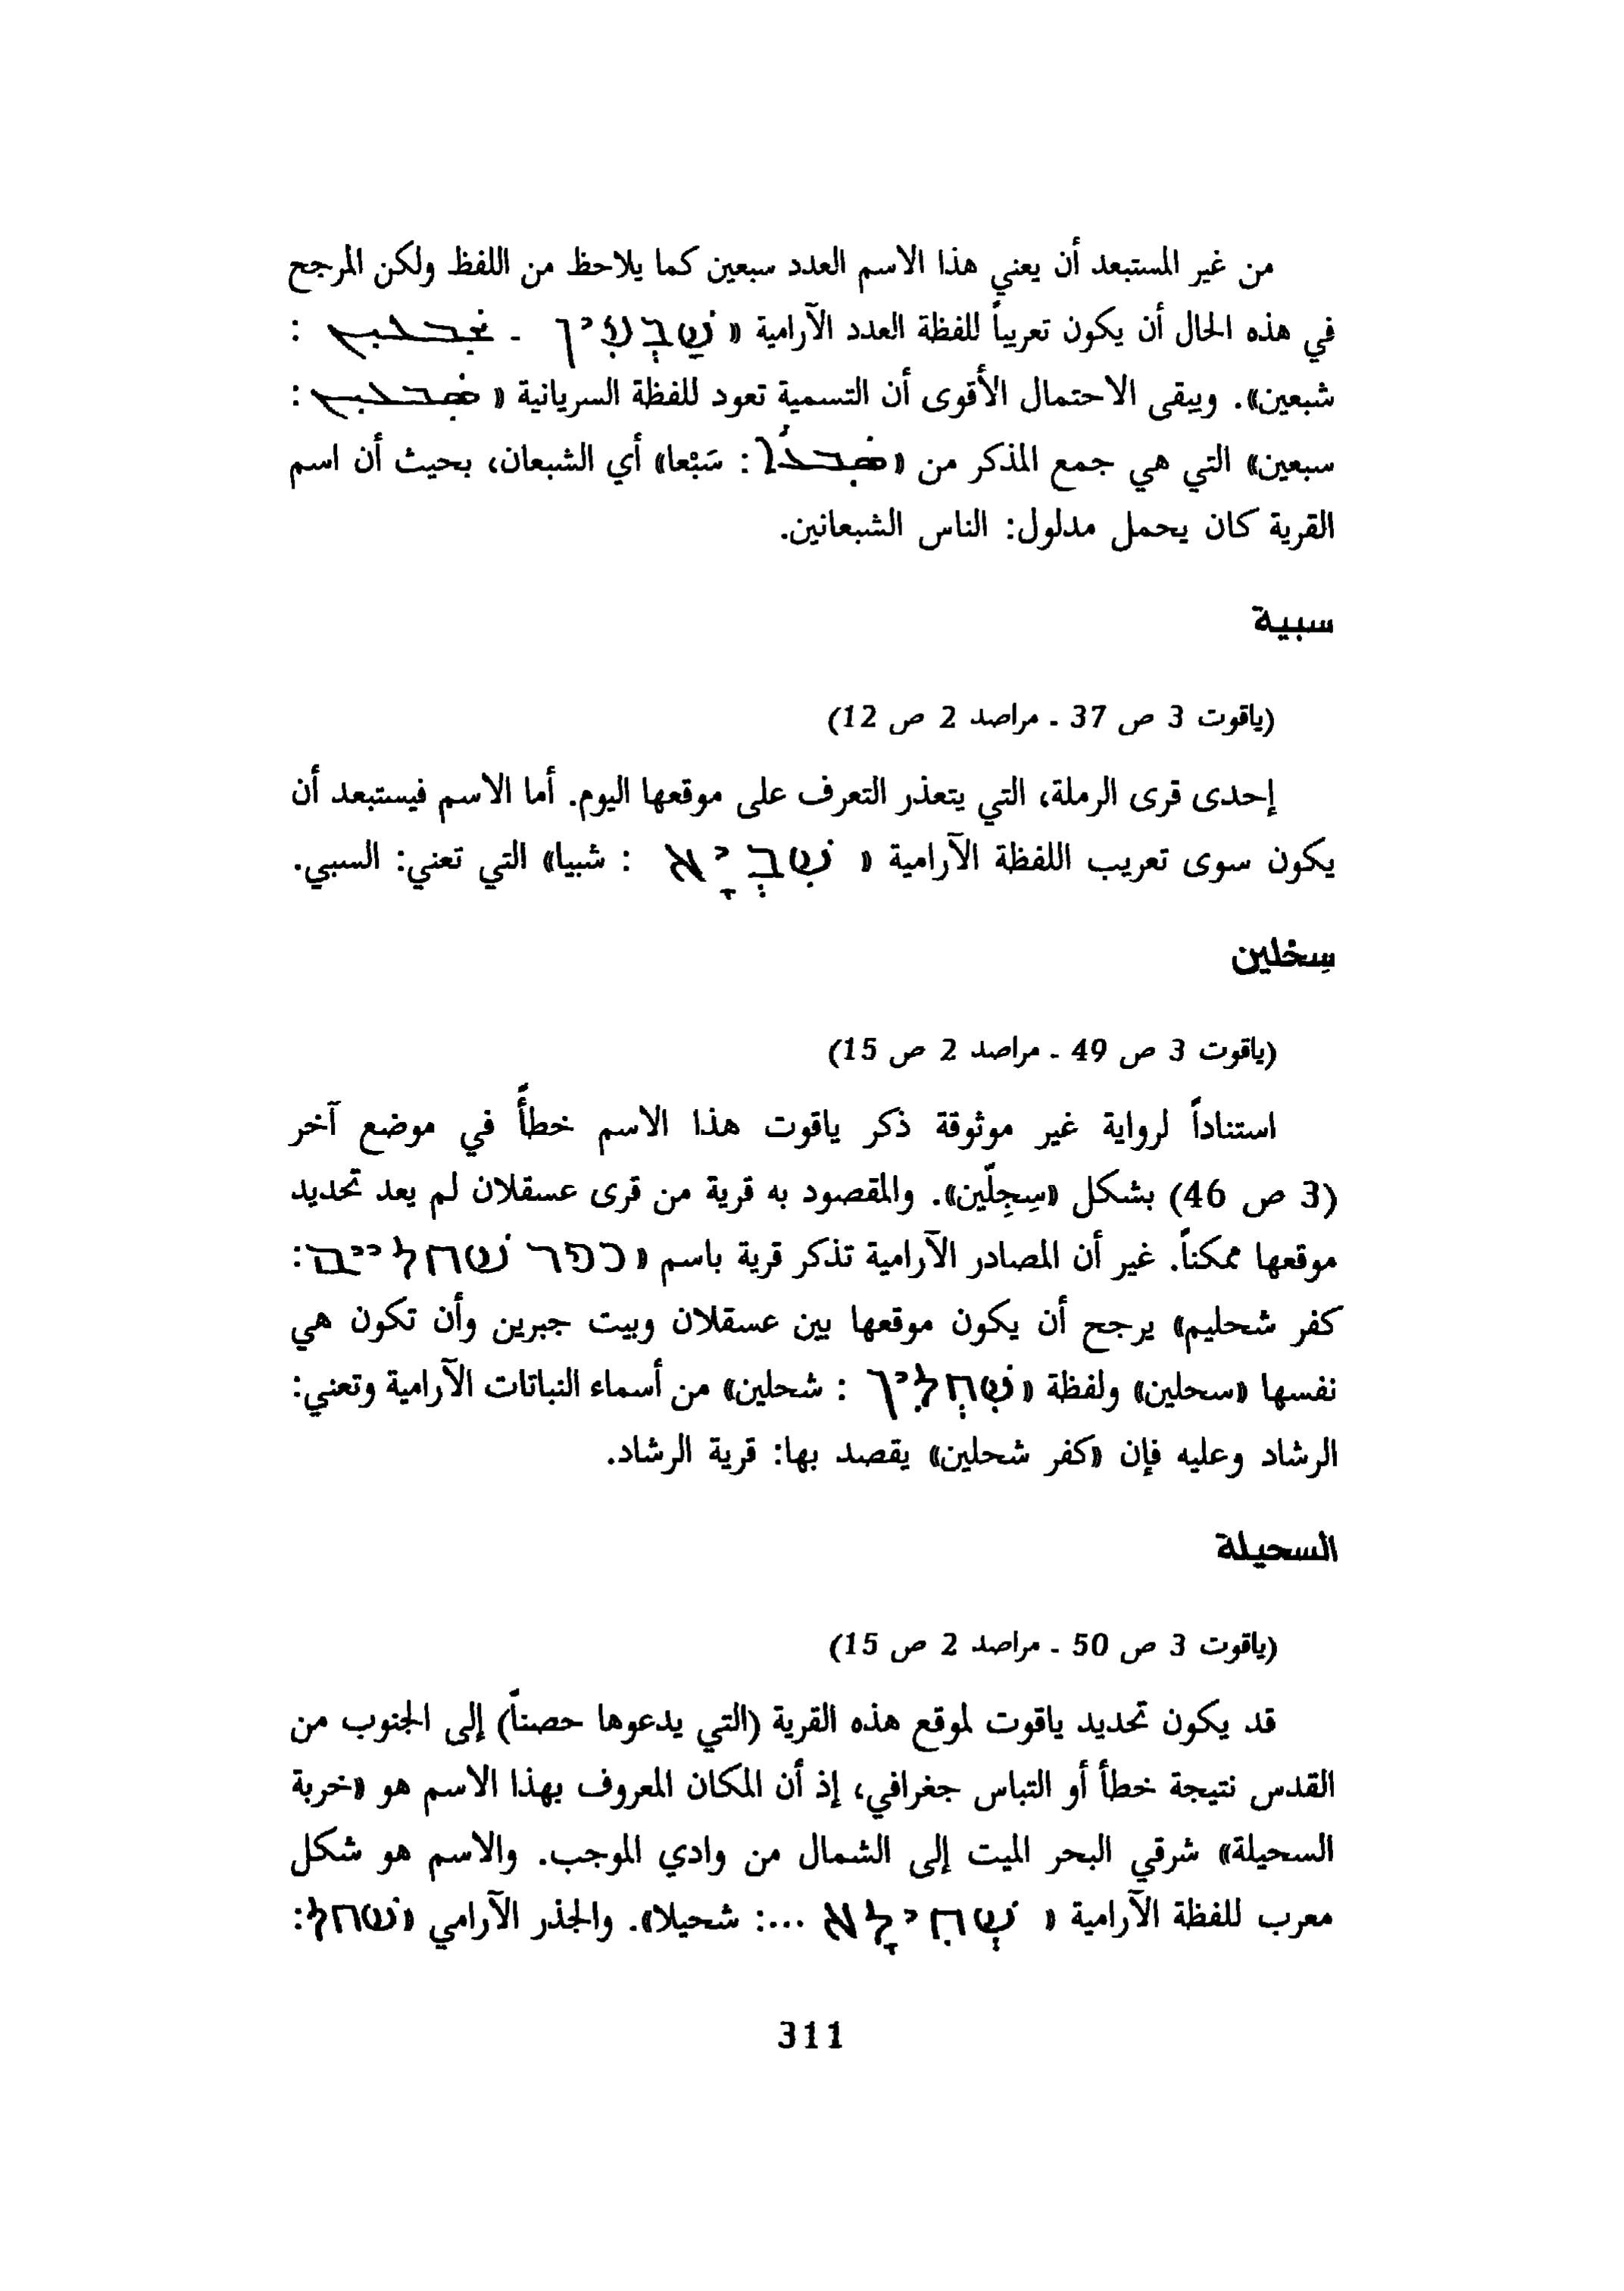 من غير المستبعد أن يعني هذا الاسم العدد سبعين كما يلاحظ من اللفظ ولكن المرجح
في هذه الحال أن يكون تعريباً للفظة العدد الآرامية «שַׁבְעִין - ܫܒܥܝܢ :
شبعين». ويبقى الاحتمال الأقوى أن التسمية تعود للفظة السريانية «ܣܒܥܝܢ :
سبعين» التي هي جمع المذكر من «ܣܒܥܐ : سَبْعا» أي الشبعان، بحيث أن اسم
القرية كان يحمل مدلول: الناس الشبعانين.
سبية
(ياقوت 3 ص 37 - مراصد 2 ص 12)
إحدى قرى الرملة، التي يتعذر التعرف على موقعها اليوم. أما الاسم فيستبعد أن
يكون سوى تعريب اللفظة الآرامية «שִׁבְיָא : شبيا» التي تعني: السبي.
سِخلين
(ياقوت 3 ص 49 - مراصد 2 ص 15)
استناداً لرواية غير موثوقة ذكر ياقوت هذا الاسم خطأً في موضع آخر
(3 ص 46) بشكل «سِجِلّين». والمقصود به قرية من قرى عسقلان لم يعد تحديد
موقعها ممكناً. غير أن المصادر الآرامية تذكر قرية باسم «כפר שׁחליים:
كفر شحليم» يرجح أن يكون موقعها بين عسقلان وبيت جبرين وأن تكون هي
نفسها «سحلين» ولفظة «שִׁחְלִין : شحلين» من أسماء النباتات الآرامية وتعني:
الرشاد وعليه فإن «كفر شحلين» يقصد بها: قرية الرشاد.
السحيلة
(ياقوت 3 ص 50 - مراصد 2 ص 15)
قد يكون تحديد ياقوت لموقع هذه القرية (التي يدعوها حصناً) إلى الجنوب من
القدس نتيجة خطأ أو التباس جغرافي، إذ أن المكان المعروف بهذا الاسم هو «خربة
السحيلة» شرقي البحر الميت إلى الشمال من وادي الموجب. والاسم هو شكل
معرب للفظة الآرامية «שְׁחִילָא ...: شحيلا». والجذر الآرامي «שׁחל:
311